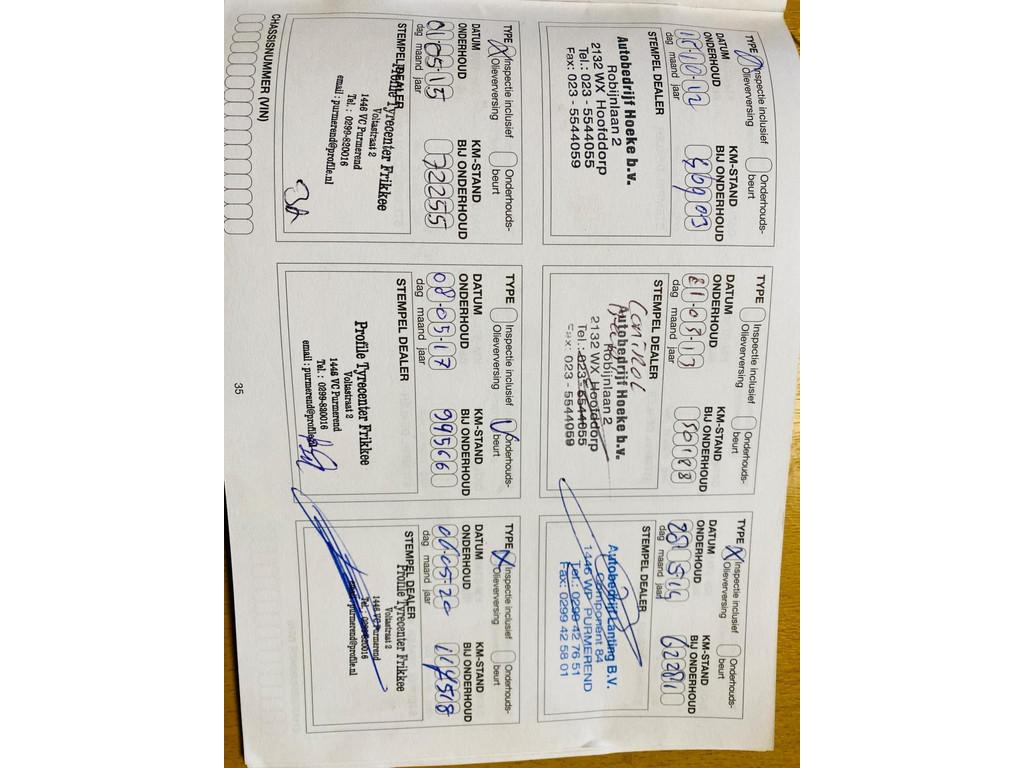 TYPE Inspectie inclusief Onderhouds-
Olieverversing beurt
DATUM KM-STAND
ONDERHOUD BIJ ONDERHOUD
dag maand jaar
STEMPEL DEALER
Autobedrijf Hoeke b.v.
Robijnlaan 2
2132 WX Hoofddorp
Tel.: 023 - 5544055
Fax: 023 - 5544059
TYPE Inspectie inclusief Onderhouds-
Olieverversing beurt
DATUM KM-STAND
ONDERHOUD BIJ ONDERHOUD
50188
dag maand jaar
STEMPEL DEALER
Control
Autobedrijf Hoeke b.v.
Robijnlaan 2
2132 WX Hoofddorp
Tel.: 023 - 5544055
Fax: 023 - 5544059
TYPE X Inspectie inclusief Onderhouds-
Olieverversing beurt
DATUM KM-STAND
ONDERHOUD BIJ ONDERHOUD
dag maand jaar
STEMPEL DEALER
Autobedrijf Lanting B.V.
Component 84
1446 WP PURMEREND
Tel. 0299 42 76 51
Fax: 0299 42 58 01
TYPE X Inspectie inclusief Onderhouds-
Olieverversing beurt
DATUM KM-STAND
ONDERHOUD BIJ ONDERHOUD
01-05-15 72255
dag maand jaar
STEMPEL DEALER
Profile Tyrecenter Frikkee
Voltastraat 2
1446 VC Purmerend
Tel. : 0299-820016
email : purmerend@profile.nl
TYPE Inspectie inclusief V Onderhouds-
Olieverversing beurt
DATUM KM-STAND
ONDERHOUD BIJ ONDERHOUD
08-05-17 99566
dag maand jaar
STEMPEL DEALER
Profile Tyrecenter Frikkee
Voltastraat 2
1446 VC Purmerend
Tel. : 0299-820016
email : purmerend@profile
TYPE X Inspectie inclusief Onderhouds-
Olieverversing beurt
DATUM KM-STAND
ONDERHOUD BIJ ONDERHOUD
dag maand jaar
STEMPEL DEALER
Profile Tyrecenter Frikkee
Voltastraat 2
1446 VC Purmerend
purmerend@profile.nl
CHASSISNUMMER (VIN)
35